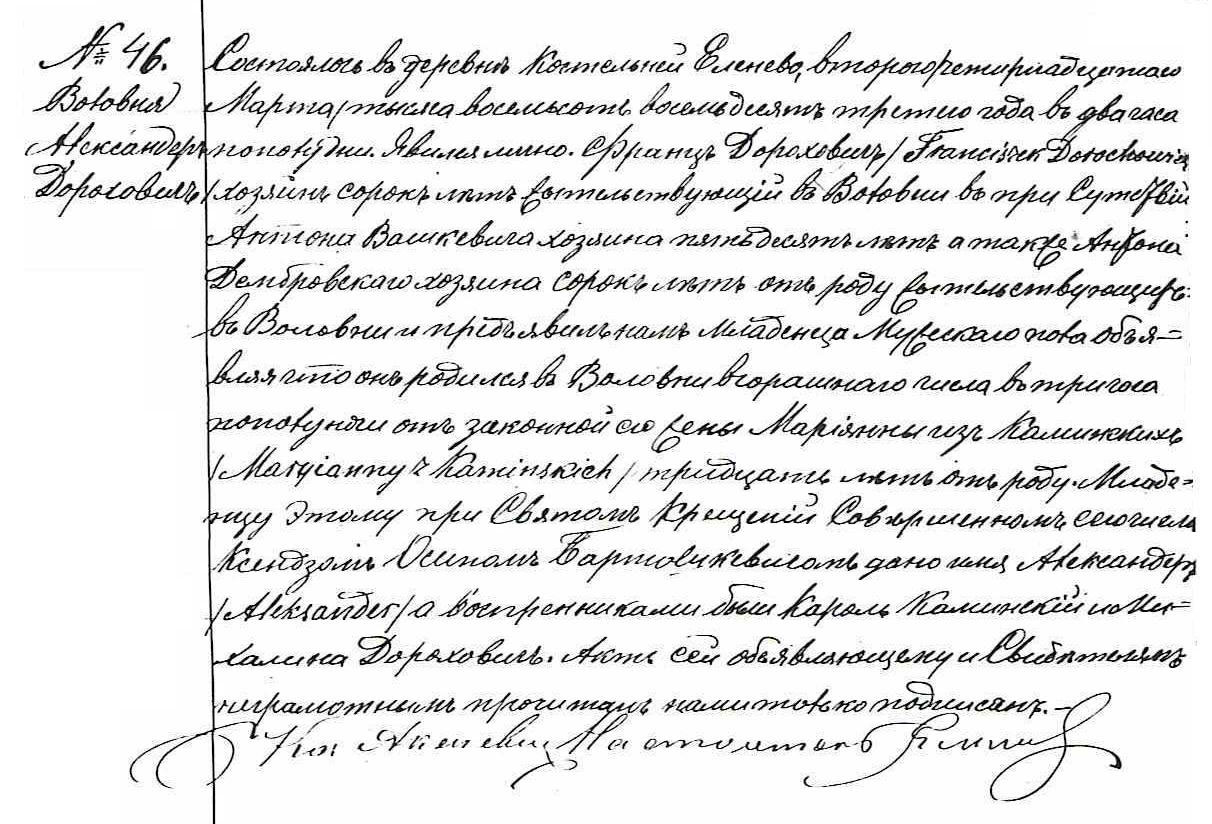 № 46.
Воłовня
Аłександеръ
Дороховичъ
Состоялось въ деревнѣ Костельней Еленево, второго/четырнадцатаго
Марта/тысяча восемьсотъ восемьдесятъ третего года въ два часа
попоłудни. Явился лично. Францъ Дороховичъ/Franciszek Dorochowicz
/хозяинъ сорокъ лѣтъ жытельствующій въ Воłовни въ при Сутствіи
Антона Вашкевича хозяина пятьдесятъ лѣтъ а также Антона
Домбровскаго хозяина сорокъ лѣтъ отъ роду жытельствующихъ
въ Воловни и предъявилъ намъ Младенца Мужескаго поłа объя=
вляя что онъ родился въ Воловни вчорашнаго числа въ три часа
попоłуночи отъ законной его жены Маріянны изъ Каминскихъ
/Maryianny z Kaminskich/тридцать лѣтъ отъ роду. Младе=
нцу Этому при Святомъ Крещеніи Совершенномъ сего числа
Ксендзомъ Осипомъ дано имя Аłександеръ
/Aleksander/а воспренниками были Кароль Каминскій и Ми=
халина Дороховичъ. Актъ сей объявляющему и Свидѣтелямъ
неграмотнымъ прочитанъ нами тоłько подписанъ.–
Настоятель